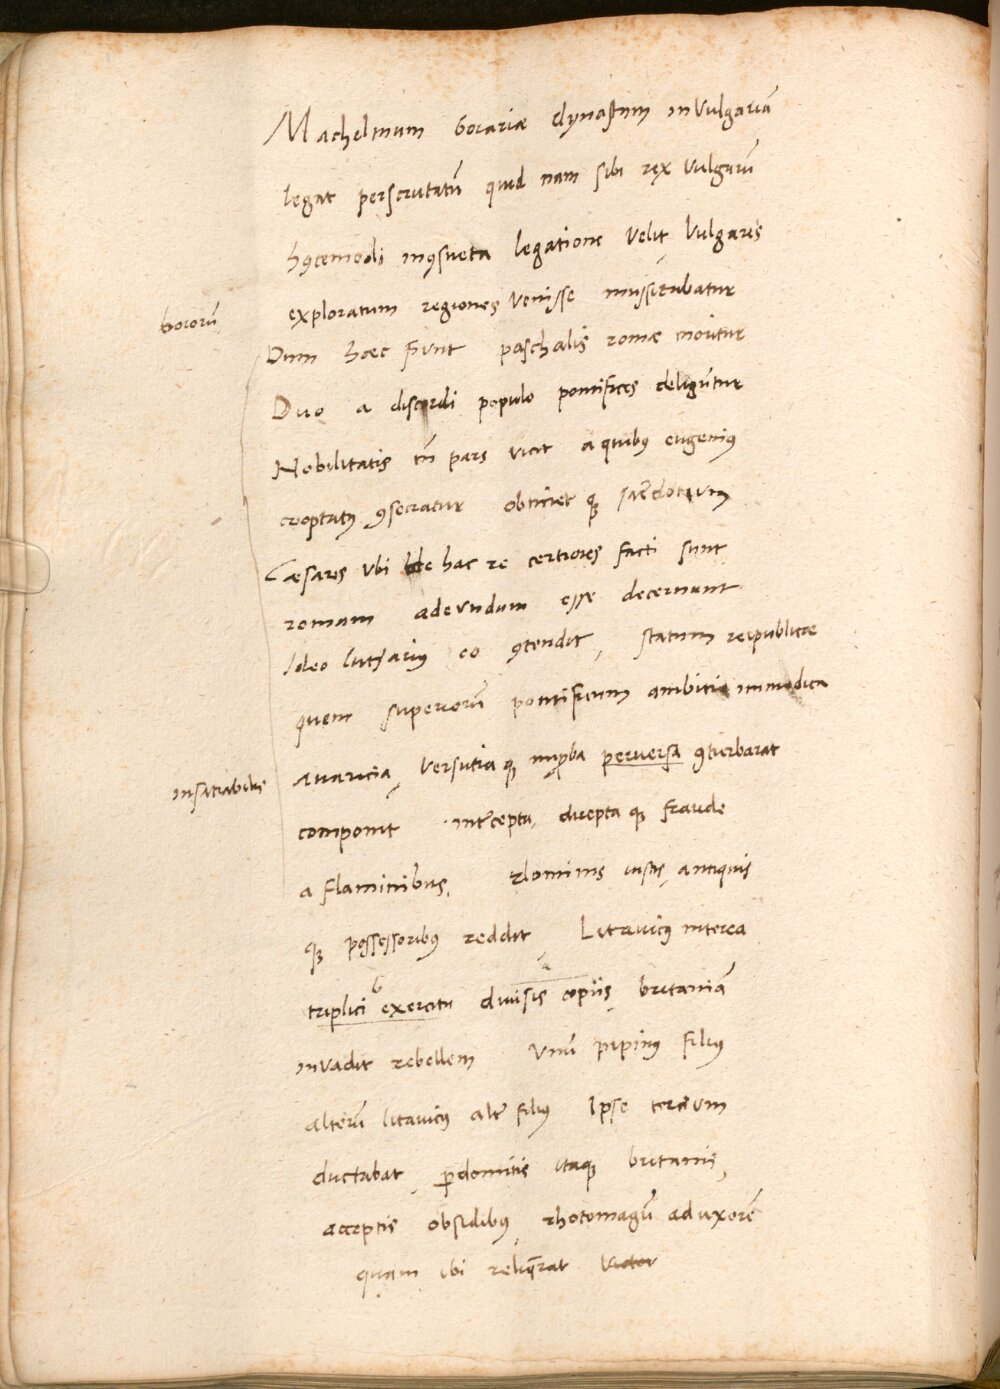 Machelmum boiariæ dynastum in Vulgariā
legat perscrutatū quid nam sibi rex Vulgarū
hꝯcemodi inꝯsueta legatione velit, Vulgares
exploratum regiones Venisse mussitabatur
boiorū
Dum hæc fiunt paschalis romæ moritur
Duo a discordi populo pontifices deligūtur
Nobilitatis tñ pars vicit a quibꝯ eugeniꝯ
cooptatꝯ ꝯsecratur obtinet qꝫ sacerdotium
Cæsares Vbi de hac re certiores facti sunt
romam adeundum esse decernunt
Ideo lutharius eo ꝯtendit, statum reipublicæ
quem superiorū pontificum ambitio immodica
insatiabilis
avaricia, versutia qꝫ improba perversa ꝯturbarat
componit intercepta, direpta qꝫ fraude
a flaminibus, dominis iustis, antiquis
qꝫ possessoribꝯ reddit, Litavicꝯ interea
b a
triplici exercitu divisis copiis britaniā
invadit rebellem Vnū pipinꝯ filiꝯ
alterū litavicꝯ alter filiꝯ Ipse tercium
ductabat, perdomitis itaqꝫ britanis,
acceptis obsidibꝯ, rhotomagū ad uxorē
quam ibi reliquerat victor